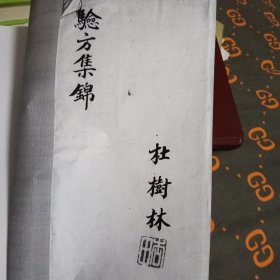 驗方集錦
杜樹林